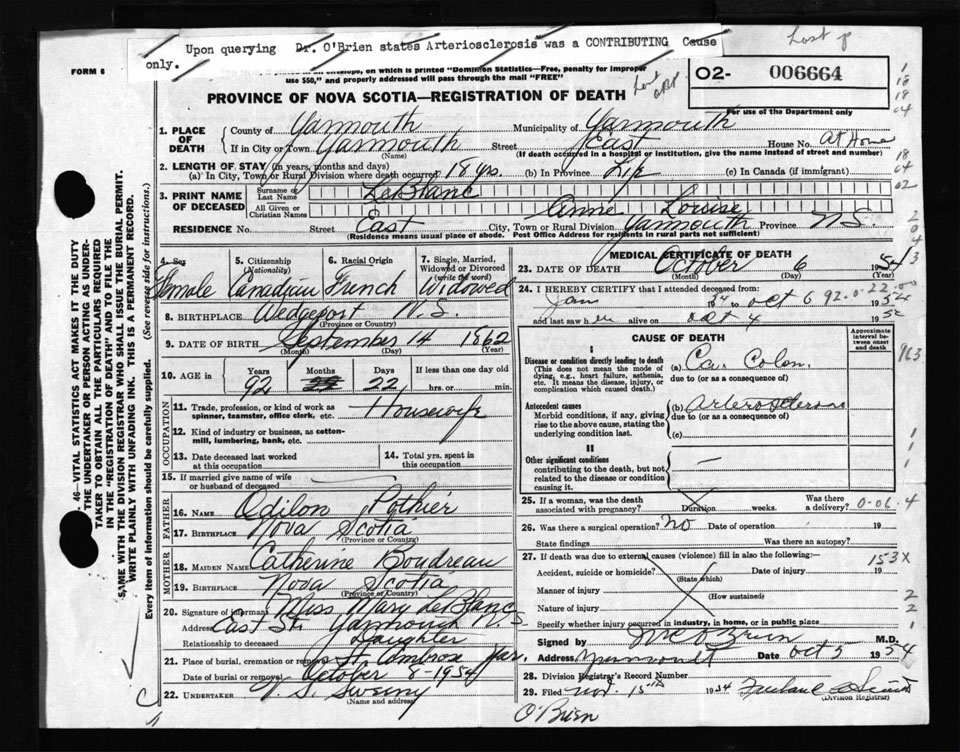 Upon querying Dr. O'Brien states Arteriosclerosis was a CONTRIBUTING Cause
only.
Lost p
FORM 6
on which is printed "Dominion Statistics—Free, penalty for improper
use $50," and properly addressed will pass through the mail "FREE"
02- 006664
PROVINCE OF NOVA SCOTIA—REGISTRATION OF DEATH
For use of the Department only
1. PLACE OF DEATH
County of Yarmouth Municipality of Yarmouth
If in City or Town Yarmouth Street East House No. at Home
(Name) (If death occurred in a hospital or institution, give the name instead of street and number)
2. LENGTH OF STAY (in years, months and days)
(a) In City, Town or Rural Division where death occurred 18 yrs. (b) In Province Life (c) In Canada (if immigrant)
3. PRINT NAME OF DECEASED
Surname or Last Name LeBlanc
All Given or Christian Names Anne Louise
RESIDENCE No. Street East City, Town or Rural Division Yarmouth Province N.S.
(Residence means usual place of abode. Post Office Address for residents in rural parts not sufficient)
4. Sex Female
5. Citizenship (Nationality) Canadian
6. Racial Origin French
7. Single, Married, Widowed or Divorced (write the word) Widowed
8. BIRTHPLACE Wedgeport N.S.
(Province or Country)
9. DATE OF BIRTH September 14 1862
(Month) (Day) (Year)
10. AGE in Years Months Days If less than one day old
92 22 hrs. or min.
OCCUPATION
11. Trade, profession, or kind of work as spinner, teamster, office clerk, etc. Housewife
12. Kind of industry or business, as cotton-mill, lumbering, bank, etc.
13. Date deceased last worked at this occupation
14. Total yrs. spent in this occupation
15. If married give name of wife or husband of deceased
FATHER
16. NAME Odilon Pothier
17. BIRTHPLACE Nova Scotia
(Province or Country)
MOTHER
18. MAIDEN NAME Catherine Boudreau
19. BIRTHPLACE Nova Scotia
(Province or Country)
20. Signature of informant Miss Mary LeBlanc
Address East St. Yarmouth N.S.
Relationship to deceased Daughter
21. Place of burial, cremation or removal St. Ambrose Yar.
Date of burial or removal October 8-1954
22. UNDERTAKER V. S. Sweeny
(Name and address)
MEDICAL CERTIFICATE OF DEATH
23. DATE OF DEATH October 6 1954
(Month) (Day) (Year)
24. I HEREBY CERTIFY that I attended deceased from:
Jan 1954 to Oct 6 1954
and last saw her alive on Oct 4 1954
92-0-22
CAUSE OF DEATH
Approximate interval between onset and death
I
Disease or condition directly leading to death
(This does not mean the mode of dying, e.g., heart failure, asthenia, etc. It means the disease, injury, or complication which caused death.)
(a) Ca. Colon.
due to (or as a consequence of)
Antecedent causes
Morbid conditions, if any, giving rise to the above cause, stating the underlying condition last.
(b) Arteriosclerosis
due to (or as a consequence of)
(c)
II
Other significant conditions
contributing to the death, but not related to the disease or condition causing it.
25. If a woman, was the death associated with pregnancy? Duration weeks. Was there a delivery?
26. Was there a surgical operation? No Date of operation 19
State findings Was there an autopsy?
27. If death was due to external causes (violence) fill in also the following:—
Accident, suicide or homicide? Date of injury 19
(State which)
Manner of injury
(How sustained)
Nature of injury
Specify whether injury occurred in industry, in home, or in public place
153X
Signed by O'Brien M.D.
Address Yarmouth Date Oct 5 1954
28. Division Registrar's Record Number
29. Filed Nov. 15th 1954
(Division Registrar)
O'Brien
46—VITAL STATISTICS ACT MAKES IT THE DUTY
THE UNDERTAKER OR PERSON ACTING AS UNDER-
TAKER TO OBTAIN ALL THE PARTICULARS REQUIRED
IN THE "REGISTRATION OF DEATH" AND TO FILE THE
SAME WITH THE DIVISION REGISTRAR WHO SHALL ISSUE THE BURIAL PERMIT.
WRITE PLAINLY WITH UNFADING INK. THIS IS A PERMANENT RECORD.
Every item of information should be carefully supplied. (See reverse side for instructions.)